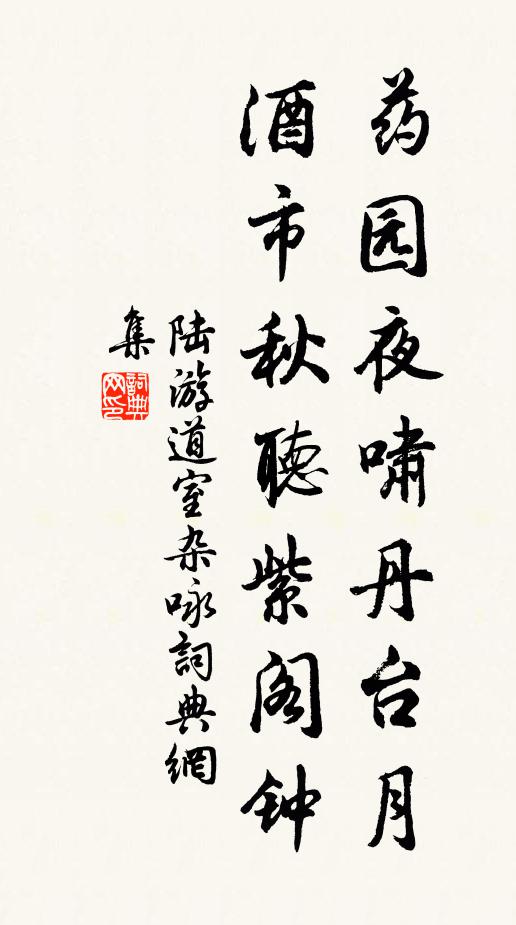 药园夜啸丹台月
酒市秋聽紫阁钟
陆游道室杂咏詞典網
集
詞典
网印